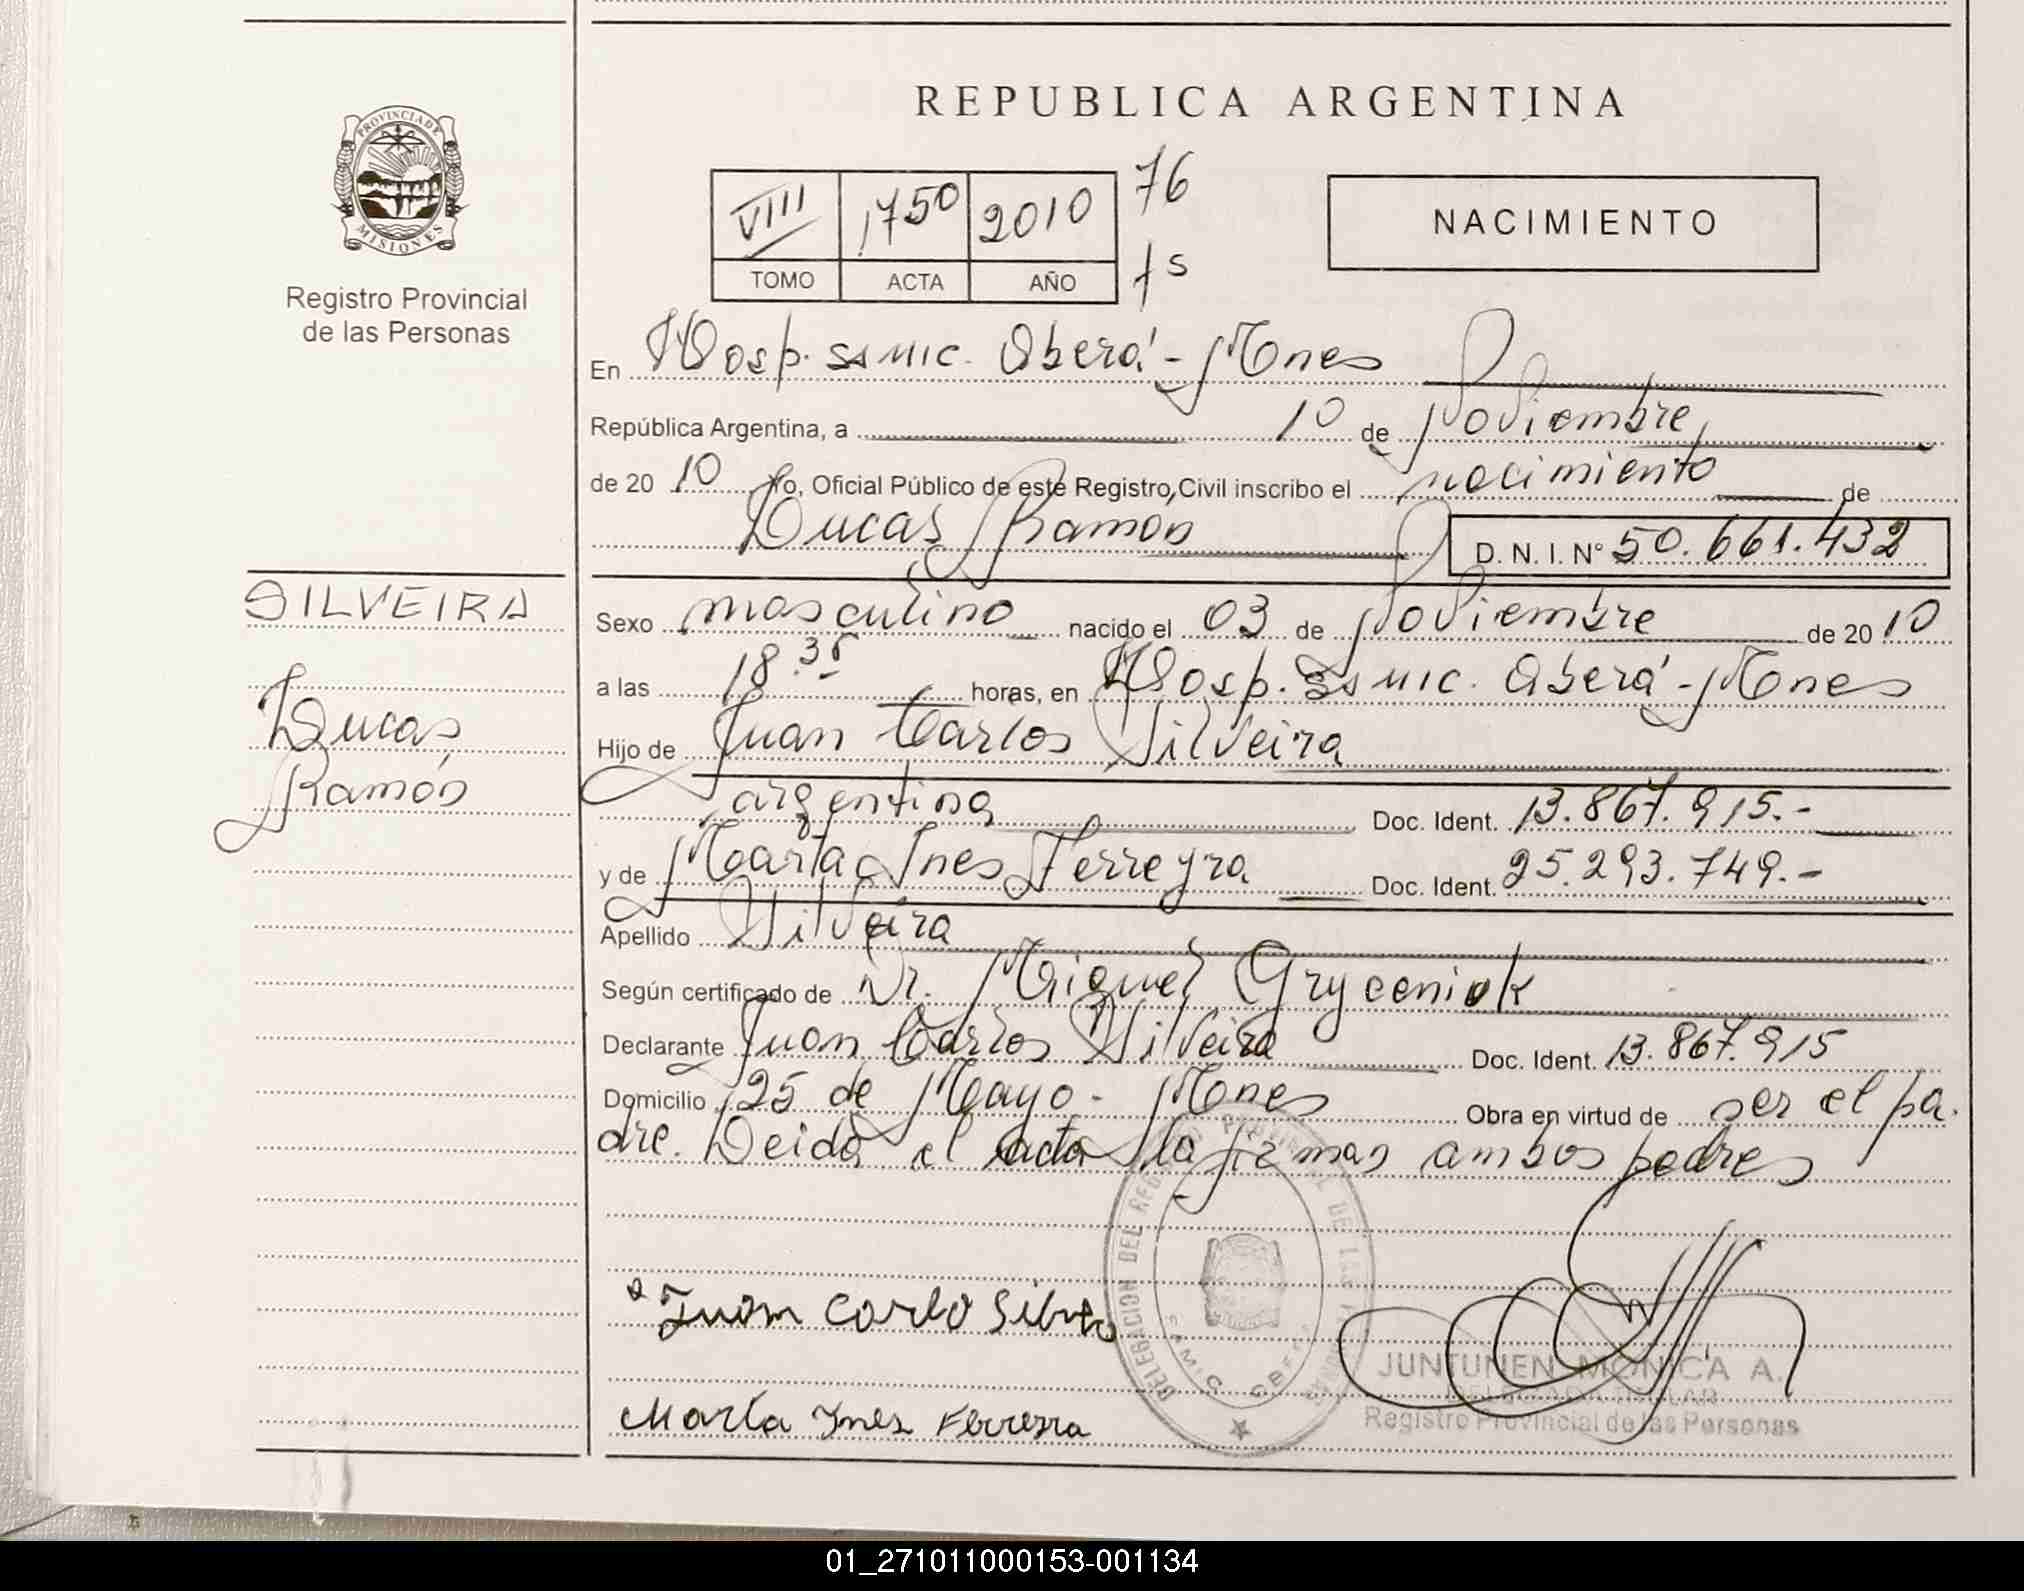 REPUBLICA ARGENTINA
PROVINCIA DE
MISIONES
Registro Provincial
de las Personas
VIII 1750 2010 76
TOMO ACTA AÑO fs
NACIMIENTO
En Hosp. SAMIC. Oberá - Mnes
República Argentina, a 10 de Noviembre
de 2010 Yo, Oficial Público de este Registro Civil inscribo el nacimiento de
Lucas Ramón D.N.I. Nº 50.661.432
SILVEIRA
Lucas
Ramón
Sexo masculino nacido el 03 de Noviembre de 2010
a las 18.35 horas, en Hosp. SAMIC. Oberá - Mnes
Hijo de Juan Carlos Silveira
argentina Doc. Ident. 13.867.915.-
y de María Ines Ferreyra Doc. Ident. 25.293.749.-
Apellido Silveira
Según certificado de Dr. Miguel Gryceniuk
Declarante Juan Carlos Silveira Doc. Ident. 13.867.915
Domicilio 25 de Mayo - Mnes Obra en virtud de ser el pa-
dre. Leida el acta la firman ambos padres
DELEGACION DEL REGISTRO PROVINCIAL DE LAS PERSONAS
Juan Carlo
JUNTUNEN MONICA A.
DELEGADA TITULAR
Registro Provincial de las Personas
María Ines Ferreyra
01_271011000153-001134